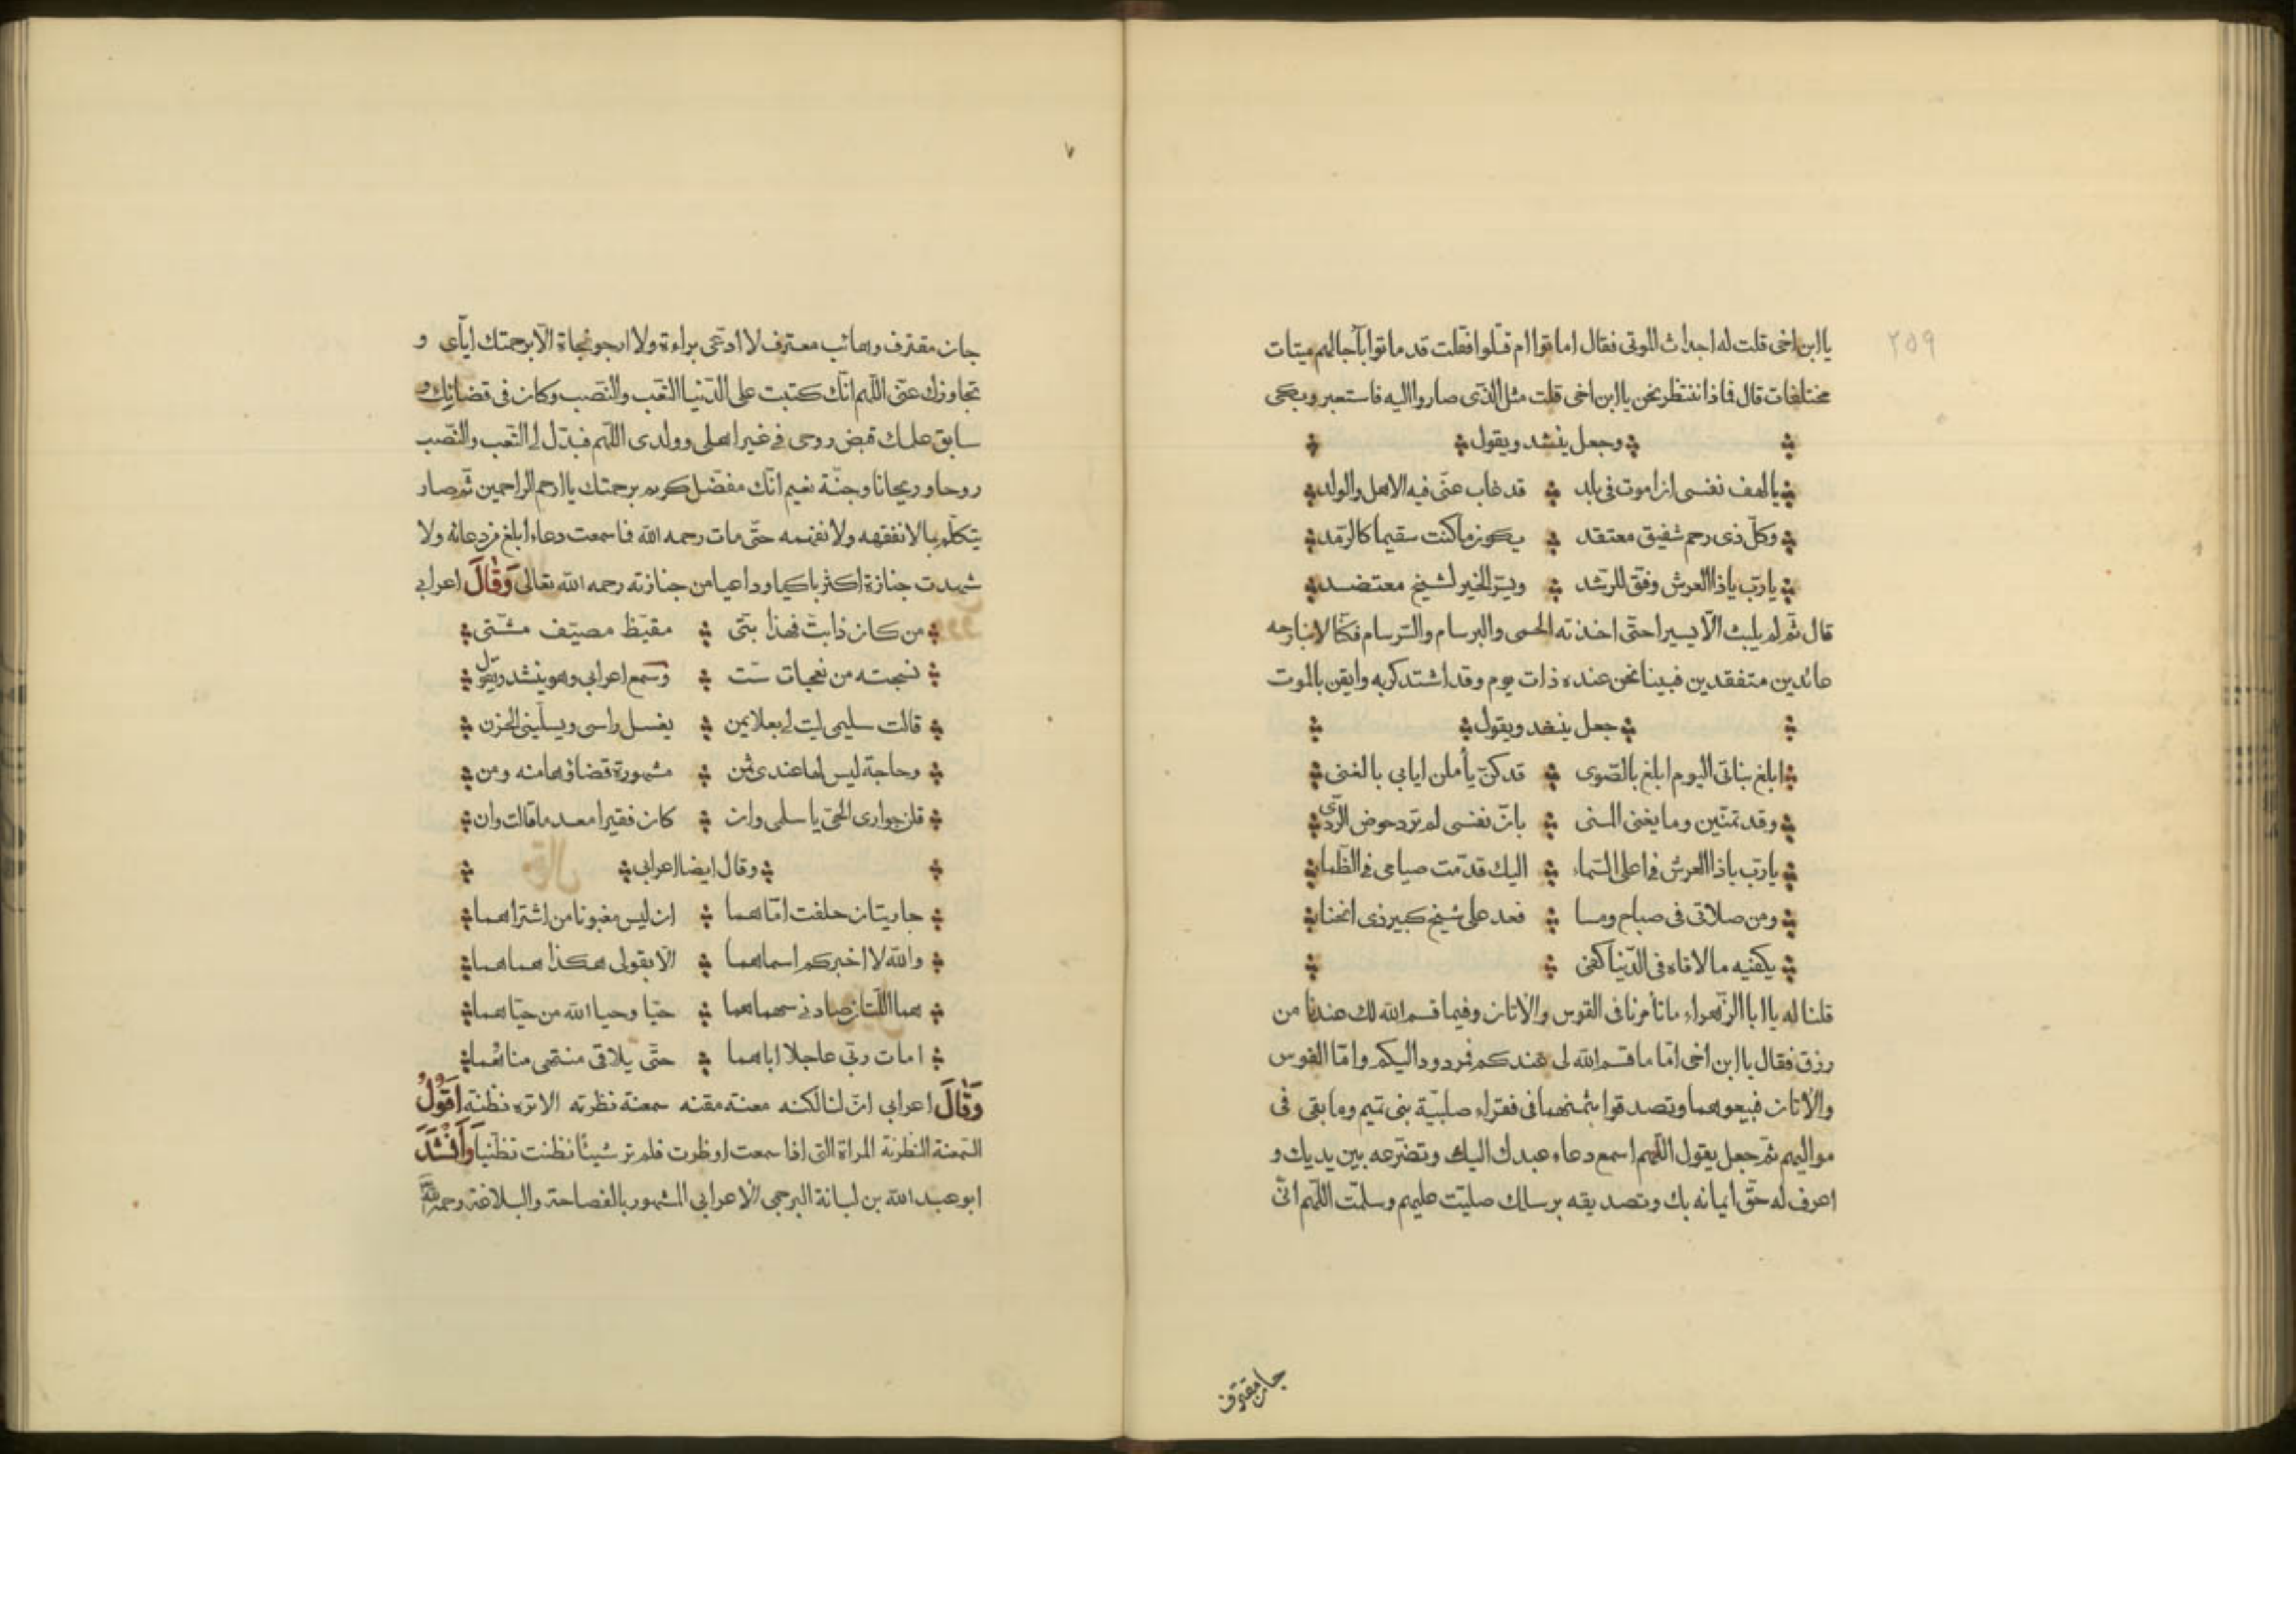 ٢٥٩
يا ابن اخى قلت له اجداث الموتى فقال اماتوا ام قتلوا فقلت قد ماتوا بآجالهم ميتات
مختلفات قال فماذا ننتظر نحن يا ابن اخى قلت مثل الذى صاروا اليه فاستعبر وبكى
وجعل ينشد ويقول
يا لهف نفسى ان اموت فى بلد قد غاب عنّى فيه الاهل والولد
وكلّ ذى رحم شفيق معتقد يكون ما كنت سقيما كالرّمد
يا ربّ يا ذا العرش وفّق للرّشد ويسّر الخير لشيخ معتضد
قال ثمّ لم يلبث الّا يسيرا حتّى اخذته الحمى والبرسام والسّرسام فكنّا لا نبارحه
عائدين متفقدين فبينا نحن عنده ذات يوم وقد اشتد كربه وايقن بالموت
جعل ينشد ويقول
ابلغ بناتى اليوم ابلغ بالصّوى قد كنّ يأملن ايابى بالغنى
وقد تمنّين وما يغنى المنى بانّ نفسى لم ترد حوض الرّدى
يا ربّ يا ذا العرش فى اعلى السّماء اليك قدّمت صيامى فى الظّما
ومن صلاتى فى صباح ومسا فعد على شيخ كبير ذى انحنا
يكفيه ما لاقاه فى الدّنيا كفى
قلنا له يا ابا الزّهراء ما تأمرنا فى القوس والاتان وفيما قسم الله لك عندنا من
رزق فقال يا ابن اخى امّا ما قسم الله لى عندكم فمردود اليكم وامّا القوس
والاتان فبيعوهما وتصدقوا بثمنهما فى فقراء صلبيّة بنى تميم وما بقى فى
مواليهم ثمّ جعل يقول اللّهم اسمع دعاء عبدك اليك وتضرّعه بين يديك و
اعرف له حقّ ايمانه بك وتصديقه برسلك صليّت عليهم وسلمّت اللّهم انّى
جان مقترف
جان مقترف وهائب معترف لا ادعّى براءة ولا ارجو نجاة الّا برحمتك ايّاى و
تجاوزك عنّى اللّهم انّك كتبت على الدّنيا التّعب والنّصب وكان فى قضائك و
سابق علمك قبض روحى فى غير اهلى وولدى اللّهم فبدّل لى التّعب والنّصب
روحا وريحانا وجنّة نعيم انّك مفضّل كريم برحمتك يا ارحم الراحمين ثمّ صار
يتكلّم بما لا نفقهه ولا نفهمه حتّى مات رحمه الله فما سمعت دعاء ابلغ من دعائه ولا
شهدت جنازة اكثر باكيا وداعيا من جنازته رحمه الله تعالى وَقَالَ اعرابى
من كان ذا بتّ فهذا بتّى مقيّظ مصيّف مشتّى
نسجته من نعجات ستّ وسمع اعرابى وهو ينشد ويقول
قالت سليمى ليت لى بعلا يمن يغسل راسى ويسلّينى الحزن
وحاجة ليس لها عندى ثمن مشهورة قضاؤها منه ومن
قلن جوارى الحىّ يا سلمى وان كان فقيرا معدما قالت وان
وقال ايضا اعرابى
جاريتان حلفت امّاهما ان ليس مغبونا من اشتراهما
والله لا اخبركم اسماهما الّا بقولى هكذا هماهما
هما اللّتان صادنى سهماهما حيّا وحيا الله من حيّاهما
امات ربّى عاجلا اباهما حتّى يلاقى منتهى مناهما
وَقَالَ اعرابى انّ لنا لكنه معنة مفنه سمعنة نظرنه الا تره تظنه اَقُولُ
السّمعنة النّظرنة المراة التى اذا سمعت او نظرت فلم تر شيئا تظنت تظنّيا وَاَنْشَدَ
ابو عبد الله بن لبانة البرجى الاعرابى المشهور بالفصاحة والبلاغة رحمه الله